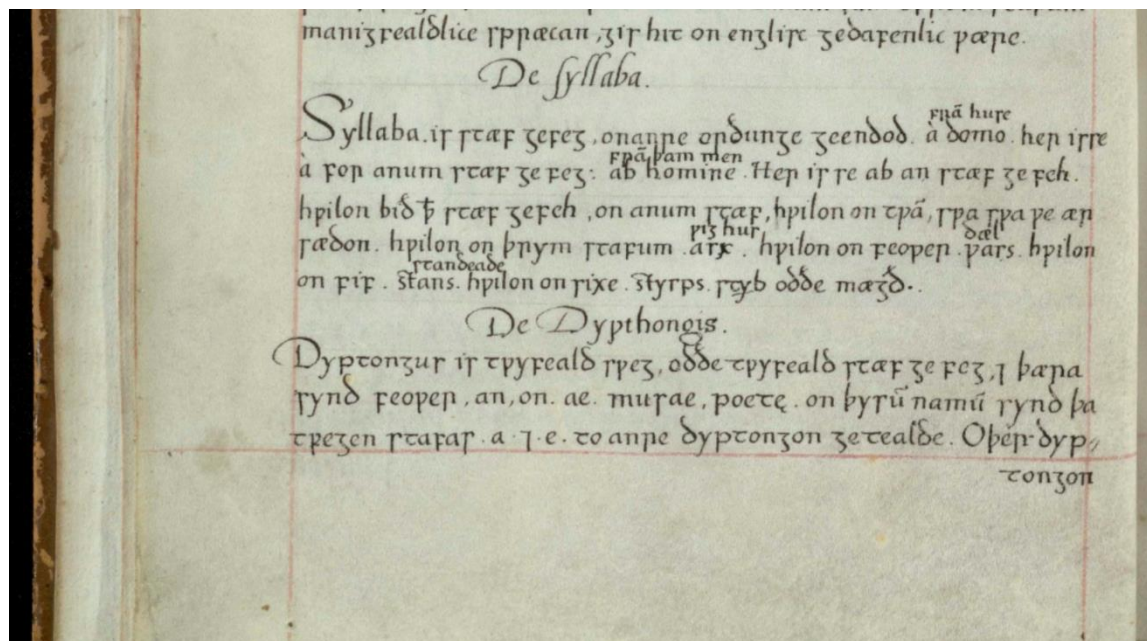 maniȝfealdlice sprecan, ȝif hit on enȝlisc ȝedafenlic wære.
De syllaba.
frā huse
Syllaba. is stæf ȝefeȝ, on anre orðunȝe ȝeendod. à domo. her is se
frā þam men
à for anum stæf ȝe feȝ: ab homine. Her is se ab an stæf ȝe feh.
hwilon bið ꝥ stæf ȝefeh, on anum stæf, hwilon on twā, swa swa we ær
fiȝ hus dæl
sædon. hwilon on þrym stafum. arx. hwilon on feower. pars. hwilon
standeade
on fif. stans. hwilon on sixe. styrps. styb oððe mæȝð.
De Dypthongis.
Dyptonȝus is twyfeald sweȝ, oððe twyfeald stæf ȝe feȝ, ⁊ þæra
synd feower, an, on. ae. musae, poetę. on þysū namū synd þa
tweȝen stafas. a. ⁊. e. to anre dyptonȝon ȝetealde. Oþer dyp⸗
tonȝon